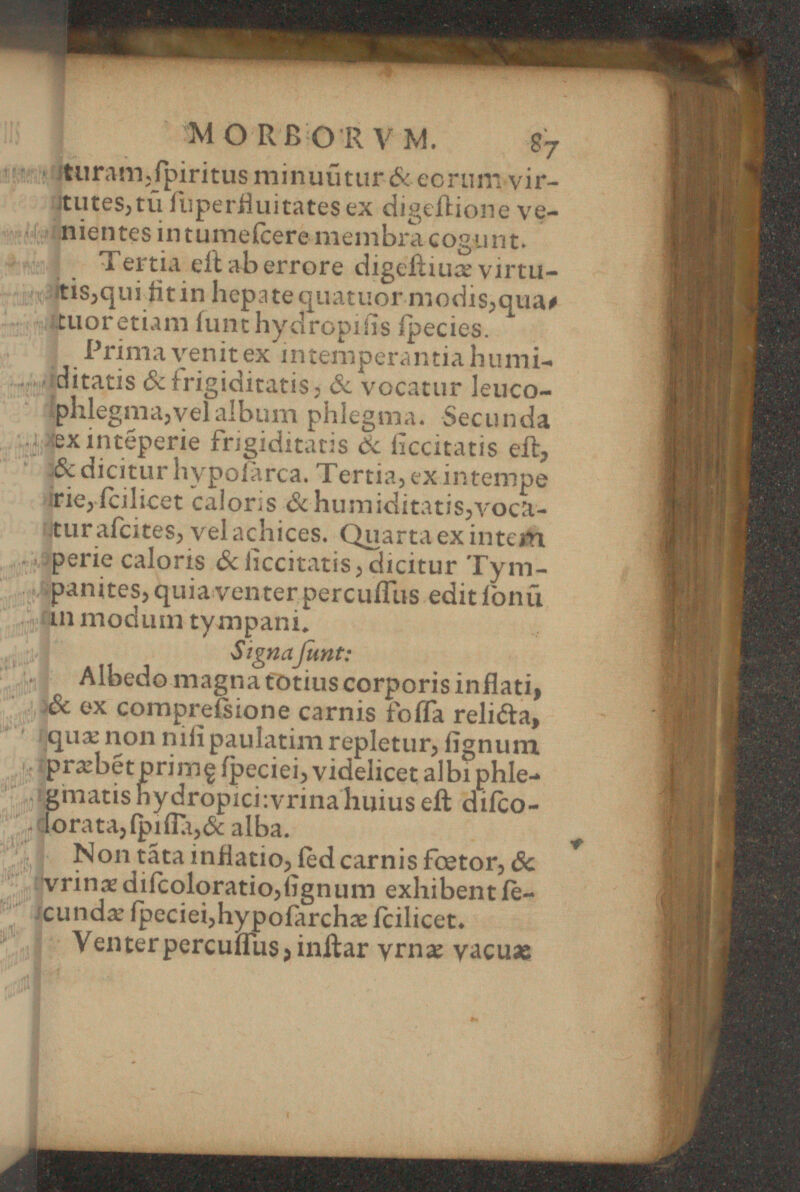 MORBORVM. 87
turam, ſpiritus minuũtur & eorum vir-
tutes, tũ ſuperfluitates ex digeſtione ve-
nientes intumeſcere membra cogunt.
Tertia eſt ab errore digeſtiuæ virtu-
tis, qui fit in hepate quatuor modis, qua-
tuor etiam ſunt hydropiſis ſpecies.
Prima venit ex intemperantia humi-
ditatis & frigiditatis, & vocatur leuco-
phlegma, vel album phlegma. Secunda
ex intẽperie frigiditatis & ſiccitatis eſt,
& dicitur hypoſarca. Tertia, ex intempe
rie, ſcilicet caloris & humiditatis, voca-
tur aſcites, vel achices. Quarta ex intem
perie caloris & ſiccitatis, dicitur Tym-
panites, quia venter percuſſus edit ſonũ
in modum tympani.
Signa ſunt:
Albedo magna totius corporis inflati,
& ex compreſsione carnis foſſa relicta,
quæ non niſi paulatim repletur, ſignum
præbẽt primę ſpeciei, videlicet albi phle-
gmatis hydropici: vrina huius eſt diſco-
lorata, ſpiſſa, & alba.
Non tãta inflatio, ſed carnis fœtor, &
vrinæ diſcoloratio, ſignum exhibent ſe-
cundæ ſpeciei, hypoſarchæ ſcilicet.
Venter percuſſus, inſtar vrnæ vacuæ